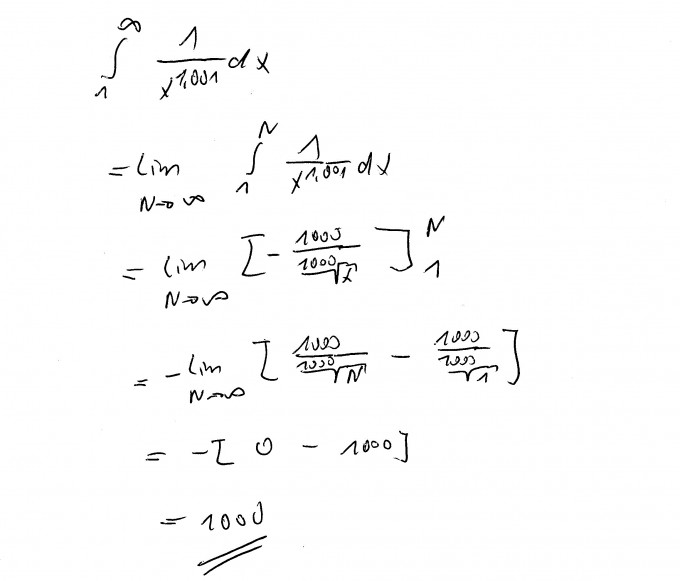 ∫₁^∞ 1/x^1,001 dx
= lim N→∞ ∫₁^N 1/x^1,001 dx
= lim N→∞ [- 1000/¹⁰⁰⁰√x]₁^N
= -lim N→∞ [1000/¹⁰⁰⁰√N - 1000/¹⁰⁰⁰√1]
= -[0 - 1000]
= 1000